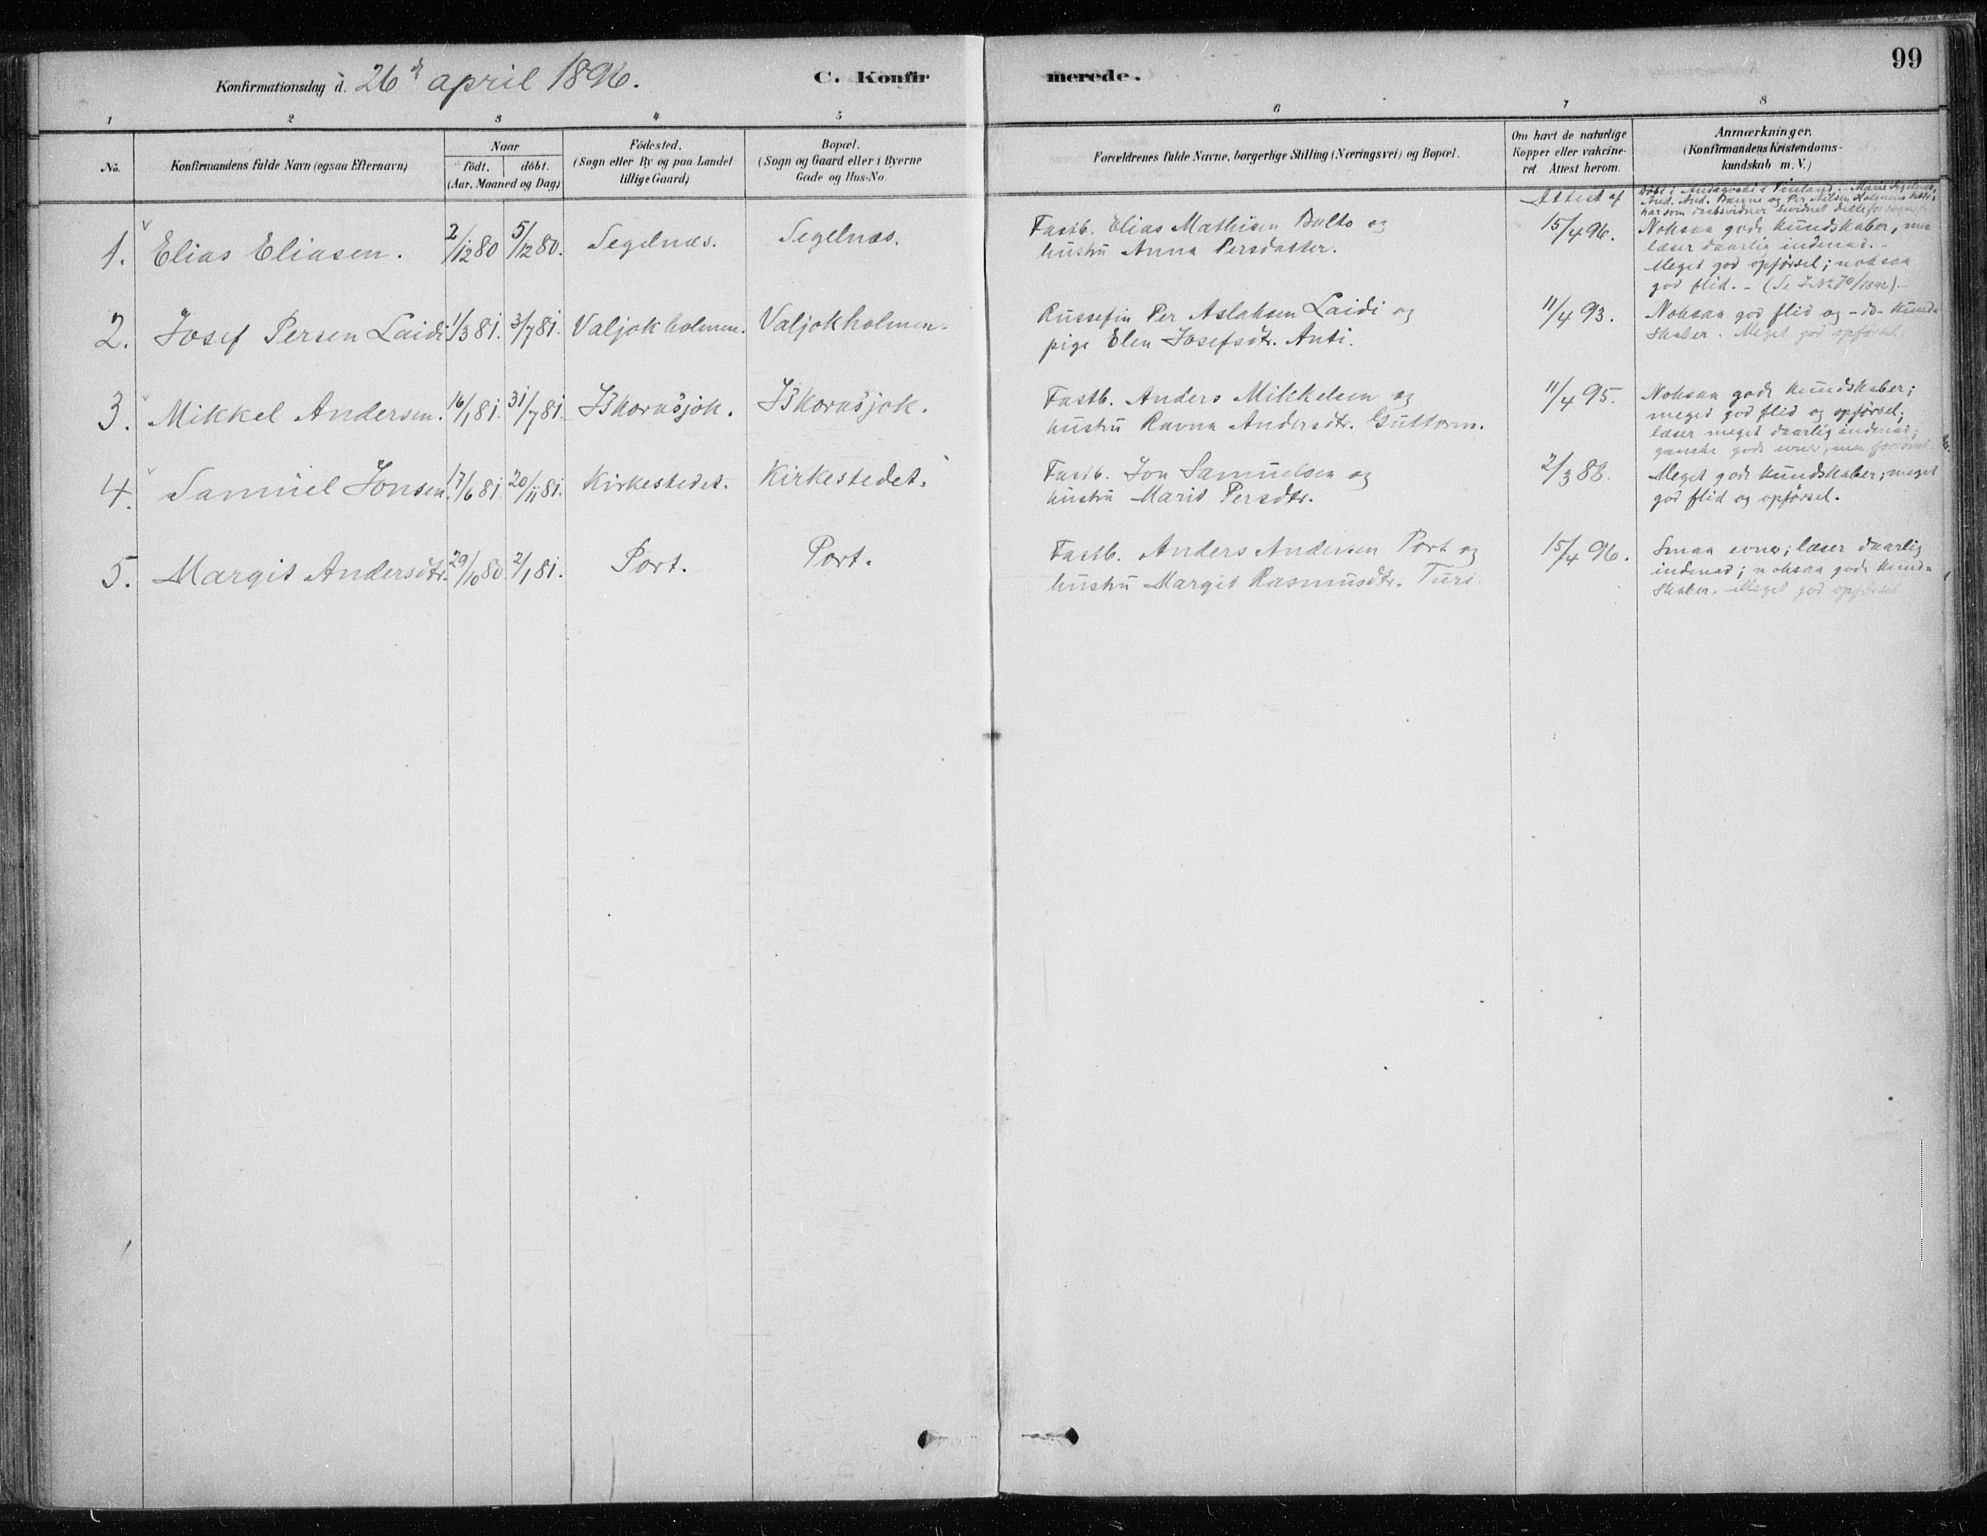 99
Konfirmationsdag d. 26de april 1896.
C. Konfirmerede.
1 2 3 4 5 6 7 8
No.
Konfirmandens fulde Navn (ogsaa Efternavn)
Naar
födt. döbt.
(Aar, Maaned og Dag)
Födested.
(Sogn eller By og paa Landet
tillige Gaard)
Bopæl.
(Sogn og Gaard eller i Byerne
Gade og Hus-No.
Forældrenes fulde Navne, borgerlige Stilling (Næringsvei) og Bopæl.
Om havt de naturlige
Kopper eller vakcine-
ret. Attest herom.
Anmærkninger.
(Konfirmandens Kristendoms-
kundskab m. V.)
Attest af
1. Elias Eliasen. 2/12 80 5/12 80. Segelnæs. Segelnæs.
Fastb. Elias Mathisen Balto og
hustru Anna Persdatter.
15/4 96.
Noksaa gode kundskaber, men
læser daarlig indenad. -
Meget god opførsel; noksaa
god flid. -
2. Josef Persen Laidi 1/3 81. 3/7 81. Valjokholmen. Valjokholmen.
Russefin Per Aslaksen Laidi og
pige Elen Josefsdtr. Anti.
11/4 93.
Noksaa god flid og -do- kund-
skaber. Meget god opførsel.
3. Mikkel Andersen. 16/1 81. 31/7 81. Iskorasjok. Iskorasjok.
Fastb. Anders Mikkelsen og
hustru Ravna Andersdtr. Guttorm.
11/4 95.
Noksaa gode kundskaber;
meget god flid og opførsel;
læser meget daarlig indenad;
ganske gode evner, men
4. Samuel Jonsen. 17/6 81. 20/11 81. Kirkestedet. Kirkestedet.
Fastb. Jon Samuelsen og
hustru Marit Persdtr.
2/3 88.
Meget gode kundskaber; meget
god flid og opførsel.
5. Margit Andersdtr. 29/10 80. 2/1 81. Port. Port.
Fastb. Anders Andersen Port og
hustru Margit Rasmusdtr. Turi.
15/4 96.
Smaa evner; læser daarlig
indenad; noksaa gode kund-
skaber. Meget god opførsel